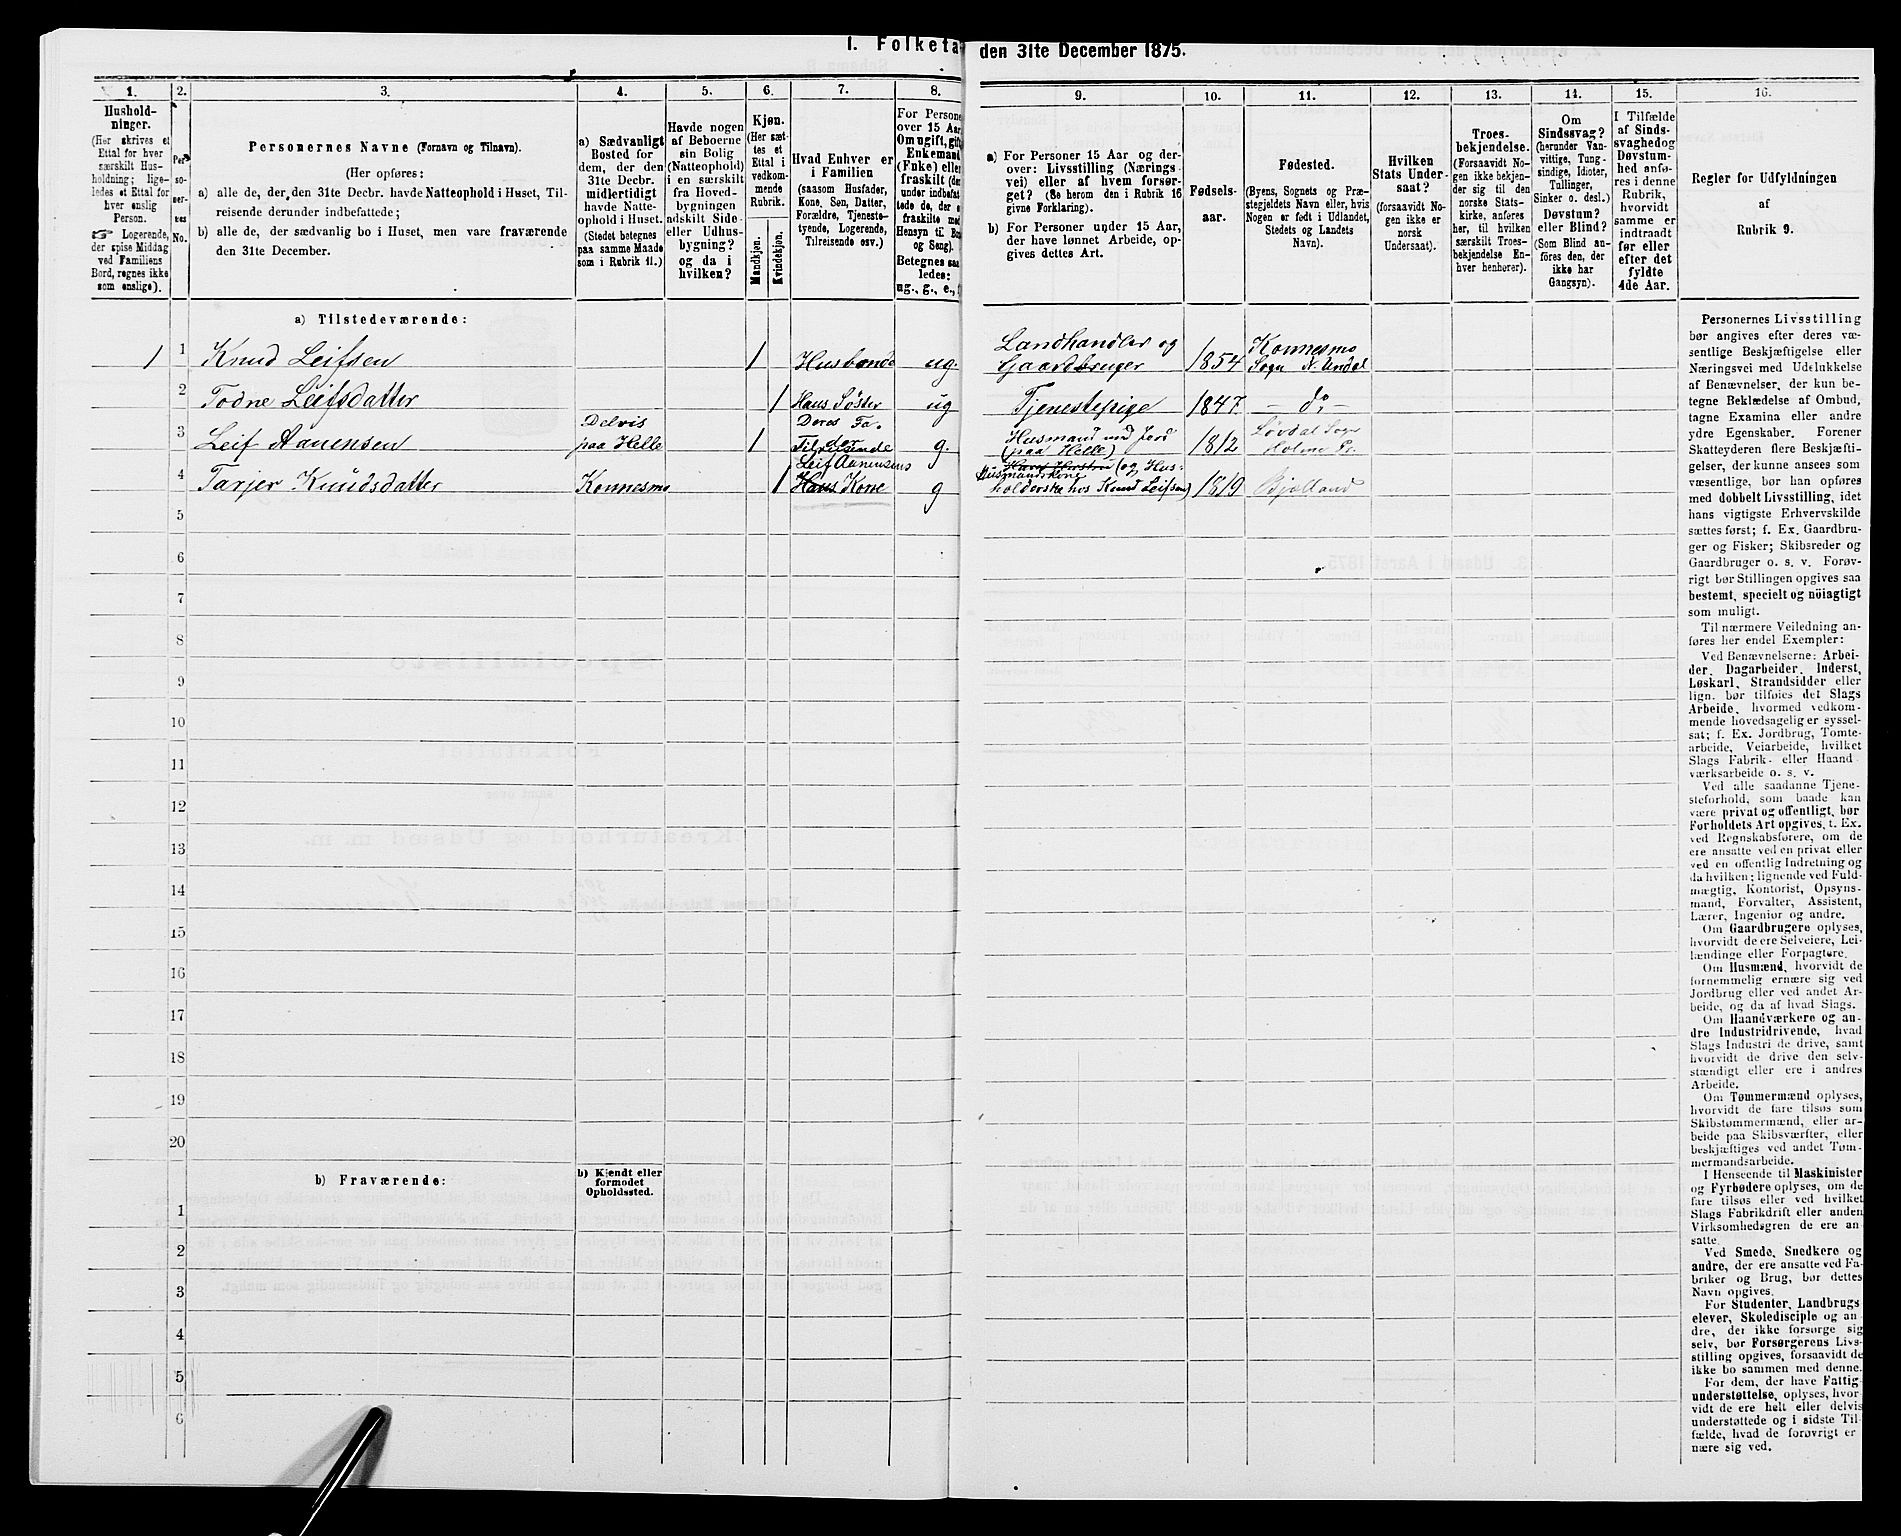 1. Folketæ
den 31te December 1875.
1.
2.
3.
4.
5.
6.
7.
8.
9.
10.
11.
12.
13.
14.
15.
16.
Hushold-
ninger.
(Her skrives et
Ettal for hver
særskilt Hus-
holdning; lige-
ledes et Ettal for
hver enslig
Person.
☞ Logerende,
der spise Middag
ved Familiens
Bord, regnes ikke
som enslige).
Per-
so-
ner-
nes
No.
Personernes Navne (Fornavn og Tilnavn).
(Her opføres:
a) alle de, der den 31te Decbr. havde Natteophold i Huset, Til-
reisende derunder indbefattede;
b) alle de, der sædvanlig bo i Huset, men vare fraværende
den 31te December.
a) Sædvanligt
Bosted for
dem, der den
31te Decbr.
midlertidigt
havde Natte-
ophold i Huset.
(Stedet betegnes
paa samme Maade
som i Rubrik 11.)
Havde nogen
af Beboerne
sin Bolig
(Natteophold)
i en særskilt
fra Hoved-
bygningen
adskilt Side-
eller Udhus-
bygning?
og da i
hvilken?
Kjøn.
(Her sæt-
tes et
Ettal i
vedkom-
mende
Rubrik.
Mandkjøn.
Kvindekjøn.
Hvad Enhver er
i Familien
(saasom Husfader,
Kone, Søn, Datter,
Forældre, Tjeneste-
tyende, Logerende,
Tilreisende osv.)
For Persone
over 15 Aar
Om ugift, gift
Enkemand
(Enke) eller
fraskilt (der
under indbefat-
tede de, der e
fraskilte med
Hensyn til Bo
og Seng).
Betegnes saa
ledes:
ug., g., e., f
a) For Personer 15 Aar og der-
over: Livsstilling (Nærings-
vei) eller af hvem forsør-
get? (Se herom den i Rubrik 16
givne Forklaring).
b) For Personer under 15 Aar,
der have lønnet Arbeide, op-
gives dettes Art.
Fødsels-
aar.
Fødested.
(Byens, Sognets og Præ-
stegjeldets Navn eller, hvis
Nogen er født i Udlandet,
Stedets og Landets
Navn).
Hvilken
Stats Under-
saat?
(forsaavidt No-
gen ikke er
norsk
Undersaat).
Troes-
bekjendelse.
(Forsaavidt No-
gen ikke bekjen-
der sig til den
norske Stats-
kirke, anføres
her, til hvilken
særskilt Troes-
bekjendelse En-
hver henhører).
Om
Sindssvag?
(herunder Van-
vittige, Tung-
sindige, Idioter,
Tullinger,
Sinker o. desl.)
Døvstum?
eller Blind?
(Som Blind an-
føres den, der
ikke har
Gangsyn).
I Tilfælde
af Sinds-
svaghed og
Døvstum-
hed anfø-
res i denne
Rubrik,
hvorvidt
samme er
indtraadt
før eller
efter det
fyldte
4de Aar.
Regler for Udfyldningen
af
Rubrik 9.
a) Tilstedeværende:
1 1 Knud Leifsen 1 Husbonde ug. Landhandler og Gaardbruger 1854 Konnesmo Sogn N. Undal
2 Todne Leifsdatter 1 Hans Søster ug Tjenestefrige 1847 – do –
3 Leif Aanensen Delvis paa Helle 1 Deres Fader Tilreisende g. Husmand med Jord (paa Helle) 1812 Løvdal Sogn Holme Pr.
4 Tarjer Knudsdatter Konnesmo 1 Leif Aanensens Hans Kone g Husmandskone (og Husholderske hos Knud Leifsen) 1819 Bjelland
5
6
7
8
9
10
11
12
13
14
15
16
17
18
19
20
b) Fraværende:
b) Kjendt eller
formodet
Opholdssted.
1
2
3
4
5
6
Personernes Livsstilling
bør angives efter deres væ-
sentlige Beskjæftigelse eller
Næringsvei med Udelukkelse
af Benævnelser, der kun be-
tegne Beklædelse af Ombud,
tagne Examina eller andre
ydre Egenskaber. Forener
Skatteyderen flere Beskjæfti-
gelser, der kunne ansees som
væsentlige, bør han opføres
med dobbelt Livsstilling, idet
hans vigtigste Erhvervskilde
sættes først; f. Ex. Gaardbru-
ger og Fisker; Skibsreder og
Gaardbruger o. s. v. Forøv-
rigt bør Stillingen opgives saa
bestemt, specielt og nöiagtigt
som muligt.
Til nærmere Veiledning an-
føres her endel Exempler:
Ved Benævnelserne: Arbei-
der, Dagarbeider, Inderst,
Løskarl, Strandsidder eller
lign. bør tilføies det Slags
Arbeide, hvormed vedkom-
mende hovedsagelig er syssel-
sat; f. Ex. Jordbrug, Tomte-
arbeide, Veiarbeide, hvilket
Slags Fabrik- eller Haand-
værksarbeide o. s. v.
Ved alle saadanne Tjene-
steforhold, som baade kan
være privat og offentligt, bør
Forholdets Art opgives, t. Ex.
ved Regnskabsførere, om de
ere ansatte ved en privat eller
ved en offentlig Indretning og
da hvilken; lignende ved Fuld-
mægtig, Kontorist, Opsyns-
mand, Forvalter, Assistent,
Lærer, Ingeniør og andre.
Om Gaardbrugere oplyses,
hvorvidt de ere Selveiere, Lei-
lændinge eller Forpagtere.
Om Husmænd, hvorvidt de
fornemmelig ernære sig ved
Jordbrug eller ved andet Ar-
beide, og da af hvad Slags.
Om Haandværkere og an-
dre Industridrivende, hvad
Slags Industri de drive, samt
hvorvidt de drive den selv-
stændigt eller ere i andres
Arbeide.
Om Tømmermænd oplyses,
hvorvidt de fare tilsøs som
Skibstømmermænd, eller ar-
beide paa Skibsværfter, eller
beskjæftiges ved andet Tøm-
mermandsarbeide.
I Henseende til Maskinister
og Fyrbødere oplyses, om de
fare tilsøs eller ved hvilket
Slags Fabrikdrift eller anden
Virksomhedsgren de ere an-
satte.
Ved Smede, Snedkere og
andre, der ere ansatte ved Fa-
briker og Brug, bør dettes
Navn opgives.
For Studenter, Landbrugs
elever, Skoledisciple og an-
dre, der ikke forsørge sig
selv, bør Forsørgerens Livs-
stilling opgives, forsaavidt de
ikke bo sammen med denne.
For dem, der have Fattig-
understøttelse, oplyses, hvor-
vidt de ere helt eller delvis
understøttede og i sidste Til-
fælde, hvad de forøvrigt er-
nære sig ved.